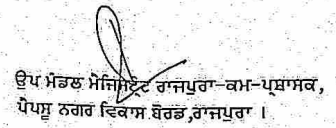 ਉਪ ਮੰਡਲ ਮੈਜਿਸਟ੍ਰੇਟ ਰਾਜਪੁਰਾ-ਕਮ-ਪ੍ਰਸ਼ਾਸਕ,
ਪੈਪਸੂ ਨਗਰ ਵਿਕਾਸ ਬੋਰਡ,ਰਾਜਪੁਰਾ ।